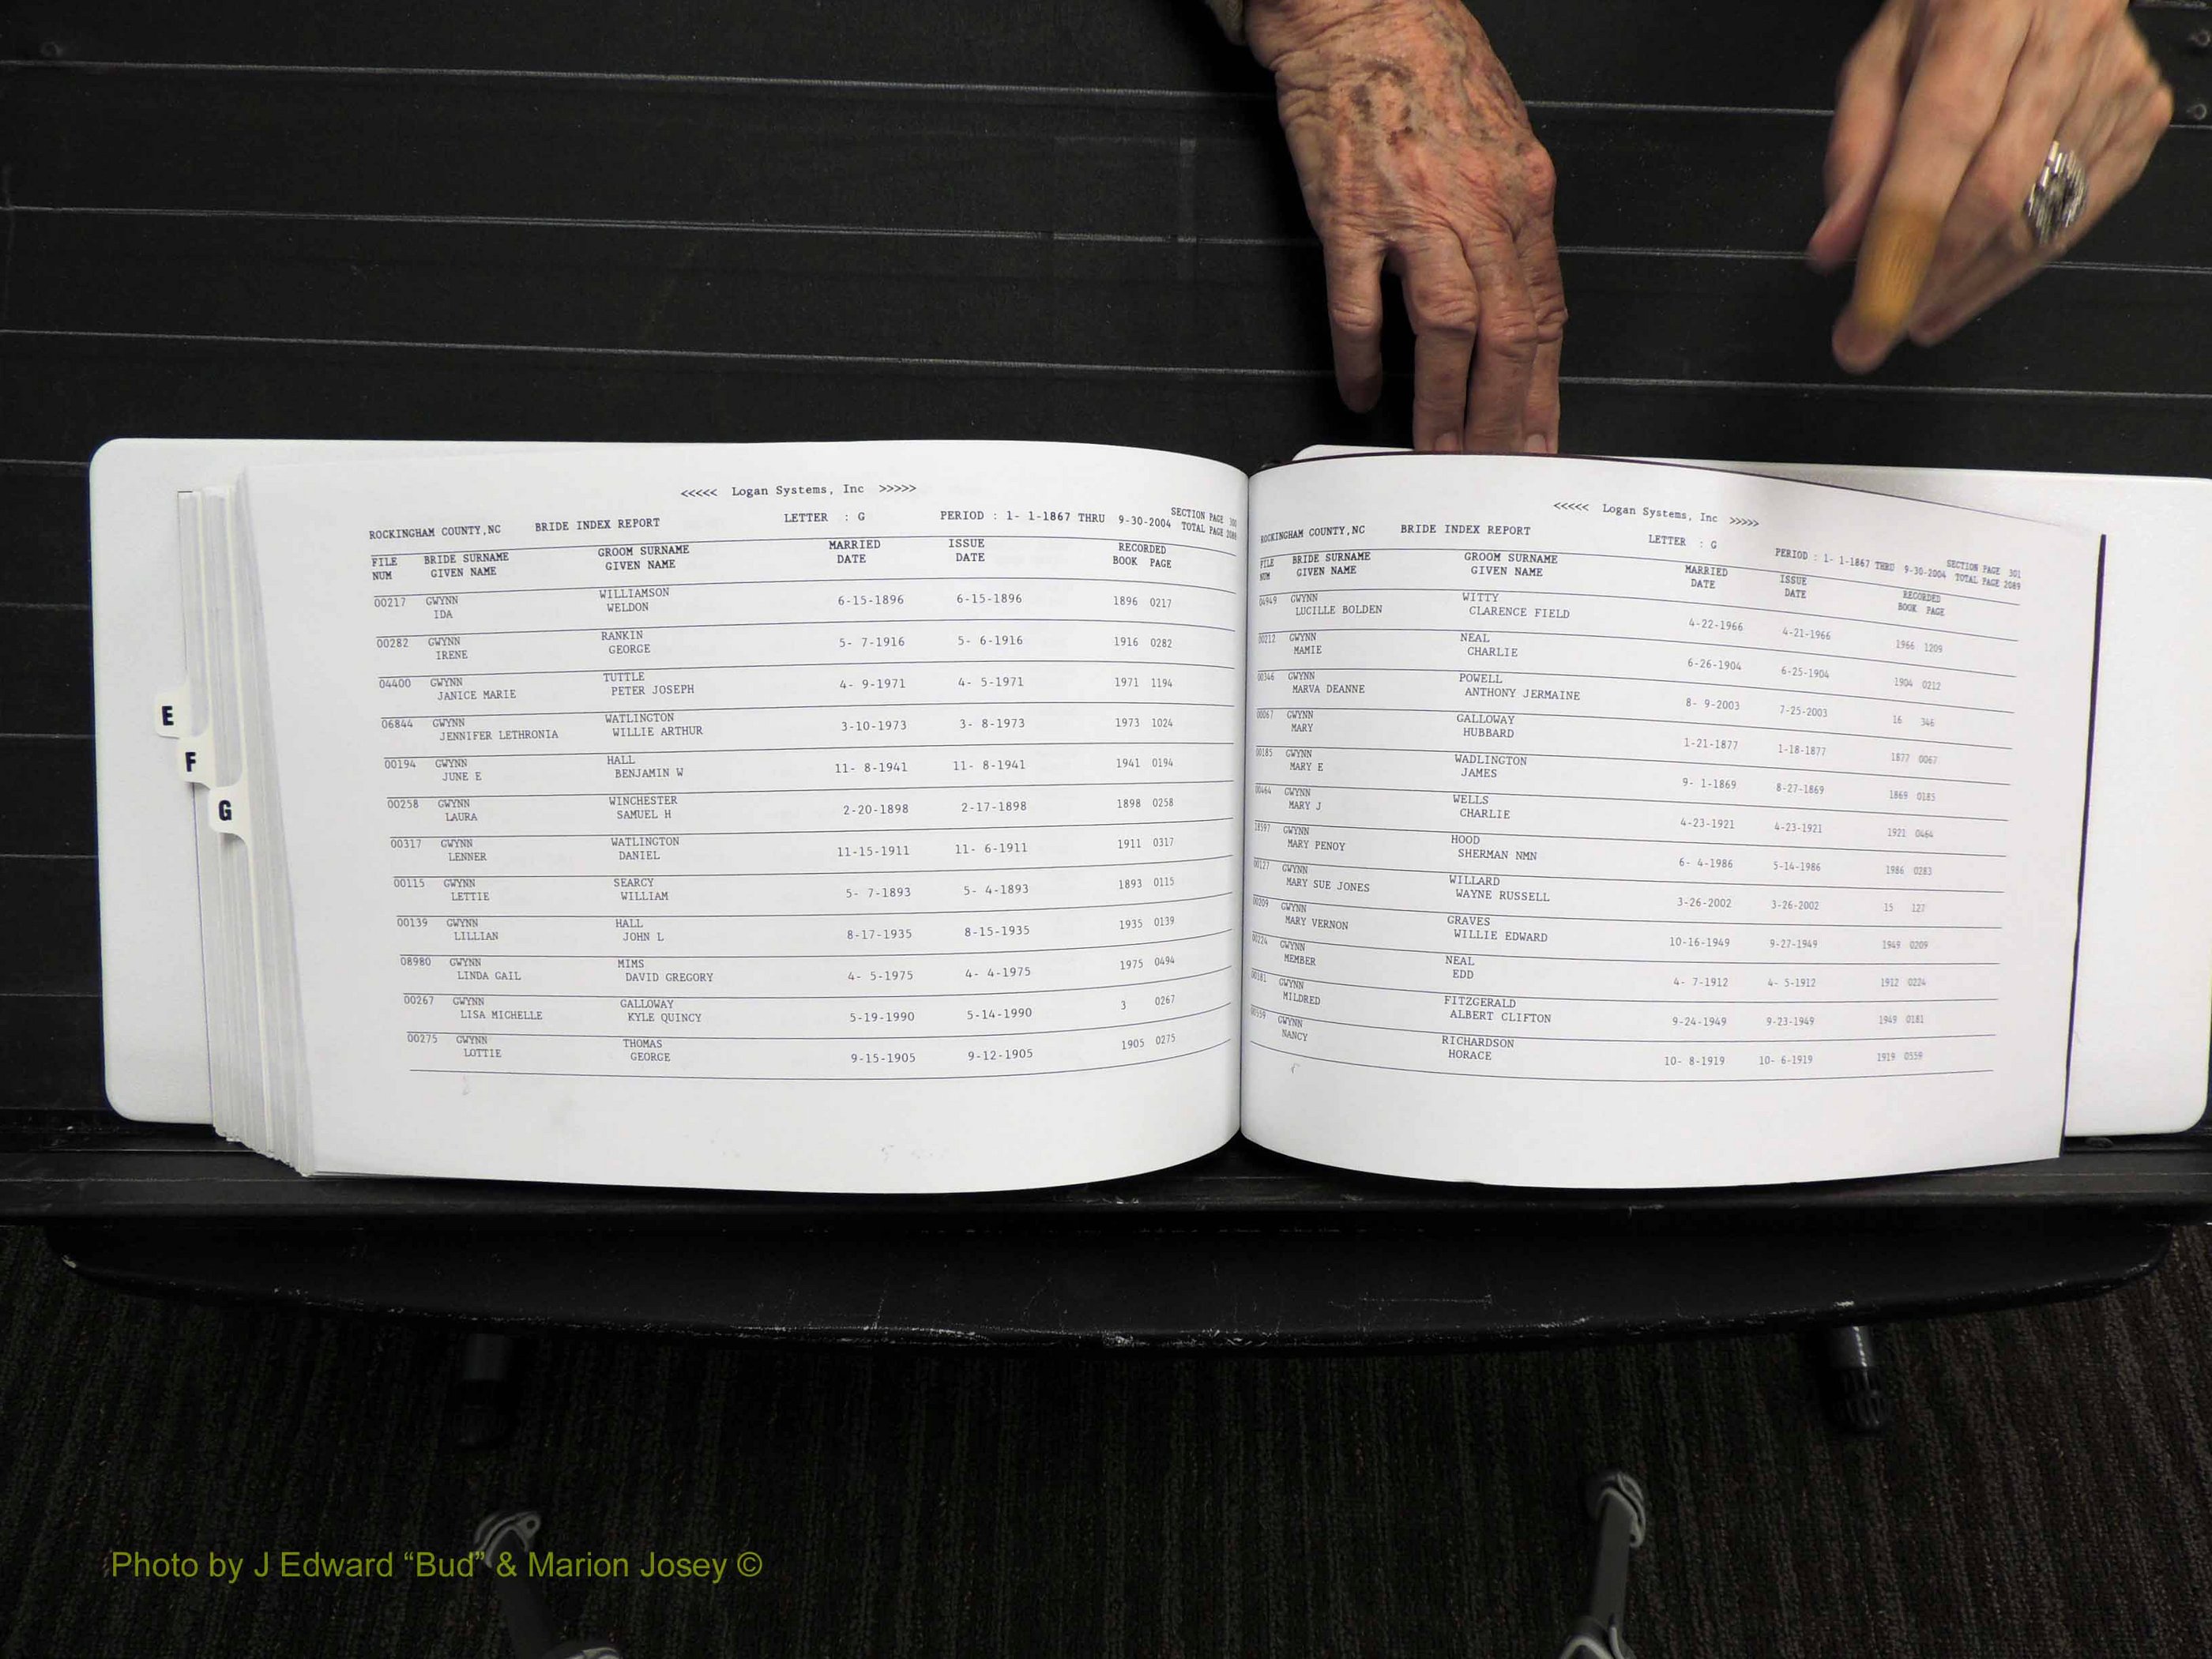 <<<<< Logan Systems, Inc >>>>>
ROCKINGHAM COUNTY,NC BRIDE INDEX REPORT LETTER : G PERIOD : 1- 1-1867 THRU 9-30-2004 SECTION PAGE 300
TOTAL PAGE 2089
FILE BRIDE SURNAME GROOM SURNAME MARRIED ISSUE RECORDED
NUM GIVEN NAME GIVEN NAME DATE DATE BOOK PAGE
00217 GWYNN WILLIAMSON 6-15-1896 6-15-1896 1896 0217
IDA WELDON
00282 GWYNN RANKIN 5- 7-1916 5- 6-1916 1916 0282
IRENE GEORGE
04400 GWYNN TUTTLE 4- 9-1971 4- 5-1971 1971 1194
JANICE MARIE PETER JOSEPH
06844 GWYNN WATLINGTON 3-10-1973 3- 8-1973 1973 1024
JENNIFER LETHRONIA WILLIE ARTHUR
00194 GWYNN HALL 11- 8-1941 11- 8-1941 1941 0194
JUNE E BENJAMIN W
00258 GWYNN WINCHESTER 2-20-1898 2-17-1898 1898 0258
LAURA SAMUEL H
00317 GWYNN WATLINGTON 11-15-1911 11- 6-1911 1911 0317
LENNER DANIEL
00115 GWYNN SEARCY 5- 7-1893 5- 4-1893 1893 0115
LETTIE WILLIAM
00139 GWYNN HALL 8-17-1935 8-15-1935 1935 0139
LILLIAN JOHN L
08980 GWYNN MIMS 4- 5-1975 4- 4-1975 1975 0494
LINDA GAIL DAVID GREGORY
00267 GWYNN GALLOWAY 5-19-1990 5-14-1990 3 0267
LISA MICHELLE KYLE QUINCY
00275 GWYNN THOMAS 9-15-1905 9-12-1905 1905 0275
LOTTIE GEORGE
E
F
G
<<<<< Logan Systems, Inc >>>>>
ROCKINGHAM COUNTY,NC BRIDE INDEX REPORT LETTER : G PERIOD : 1- 1-1867 THRU 9-30-2004 SECTION PAGE 301
TOTAL PAGE 2089
FILE BRIDE SURNAME GROOM SURNAME MARRIED ISSUE RECORDED
NUM GIVEN NAME GIVEN NAME DATE DATE BOOK PAGE
04949 GWYNN WITTY 4-22-1966 4-21-1966 1966 1209
LUCILLE BOLDEN CLARENCE FIELD
00212 GWYNN NEAL 6-26-1904 6-25-1904 1904 0212
MAMIE CHARLIE
00346 GWYNN POWELL 8- 9-2003 7-25-2003 16 346
MARVA DEANNE ANTHONY JERMAINE
00067 GWYNN GALLOWAY 1-21-1877 1-18-1877 1877 0067
MARY HUBBARD
00185 GWYNN WADLINGTON 9- 1-1869 8-27-1869 1869 0185
MARY E JAMES
00464 GWYNN WELLS 4-23-1921 4-23-1921 1921 0464
MARY J CHARLIE
18597 GWYNN HOOD 6- 4-1986 5-14-1986 1986 0283
MARY PENOY SHERMAN NMN
00127 GWYNN WILLARD 3-26-2002 3-26-2002 15 127
MARY SUE JONES WAYNE RUSSELL
00209 GWYNN GRAVES 10-16-1949 9-27-1949 1949 0209
MARY VERNON WILLIE EDWARD
00224 GWYNN NEAL 4- 7-1912 4- 5-1912 1912 0224
MEMBER EDD
00181 GWYNN FITZGERALD 9-24-1949 9-23-1949 1949 0181
MILDRED ALBERT CLIFTON
00559 GWYNN RICHARDSON 10- 8-1919 10- 6-1919 1919 0559
NANCY HORACE
Photo by J Edward “Bud” & Marion Josey ©